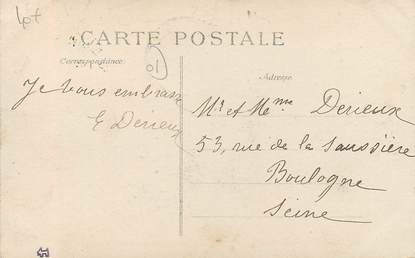 Lot
CARTE POSTALE
Correspondance
01
Adresse
Je vous embrasse
E Derieux
Mr et Mme Derieux
53, rue de la Saussière
Boulogne
Seine